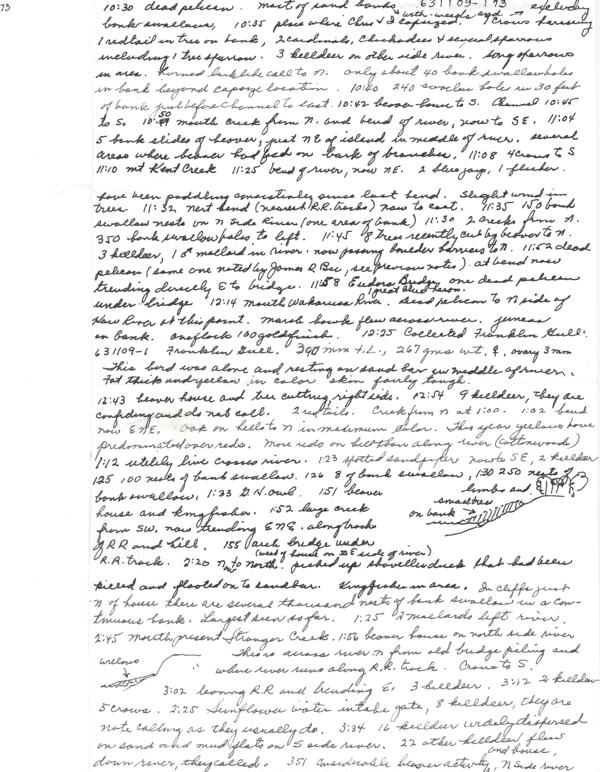 73
10:30 dead pelican. most of sand banks 631109-1 73
bank swallows, 10:35 place where Chas & I capsized. Crows harassing
1 redtail in tree on bank, 2 cardinals, Chickadees & several sparrows
including 1 tree sparrow. 3 killdeer on other side river. song sparrows
in area. Horned lark like call to N. only about 40 bank swallow holes
in bank beyond capsize location. 10:40 240 swallow holes in 30 feet
of bank just before channel to east. 10:42 beaver house to S. Channel 10:45
to So. 10:50 mouth creek from N. and bend of river, now to SE. 11:04
5 bank slides of beaver, just NE of island in middle of river. several
areas where beaver had fed on bark of branches. 11:08 4 crows to S
11:10 mt Kent Creek 11:25 bend of river, now NE. 2 blue jays, 1 flicker.
have been paddling consistently since last bend. Slight wind in
trees. 11:32 next bend (nearest R.R. tracks) now to east. 11:35 150 bank
swallow nests on N Side River (one area of bank) 11:30 2 creeks from N.
350 bank swallow holes to left. 11:45 8 trees recently cut by beaver to N.
3 killdeer, 1 ♂ mallard in river. now passing boulder barriers to N. 11:52 dead
pelican (same one noted by James R Bee, see previous notes). at bend now
trending directly E to bridge. 11:58 Eudora Bridge one dead pelican
great blue heron.
under bridge 12:14 mouth Wakarusa River. Dead pelican to N side of
Kaw River at this point. marsh hawk flew across river. juncos
on bank. one flock 100 goldfinch. 12:25 Collected Franklin Gull.
631109-1 Franklin Gull. 340 mm t.L., 267 gms wt. ♀, ovary 3mm
This bird was alone and resting on sand bar in middle of river.
Fat thick and yellow in color skin fairly tough.
12:43 beaver house and tree cutting, right side. 12:54 9 killdeer, they are
confiding and do not call. 2 redtails. Creek from N at 1:00. 1:02 bend
now ENE. Oak on hills to N in maximum color. This year yellows have
predominated over reds. More reds on hill than along river (cottonwoods)
1:12 utility line crosses river. 1:23 spotted sandpiper now to SE, 2 killdeer
125 100 nests of bank swallow. 126 8 of bank swallow, 1:30 250 nests of
bank swallow. 1:33 G.H. owl. 151 beaver
limbs and
small tree
house and kingfisher. 1:52 large creek
on bank
from SW, now trending ENE. along track
of R R and hill. 155 arch bridge under
(west of house on SE side of river)
R.R. track. 2:20 now to North. picked up shoveller duck that had been
killed and floated on to sandbar. Kingfisher in area. In cliffs just
N of house there are several thousand nests of bank swallow in a con-
tinuous bank. Largest seen so far. 1:25 2 mallards left river.
2:45 mouth present Stranger Creek. 1:56 beaver house on north side river
This is across river N from old bridge piling and
where river runs along R.R. track. Crows to S.
3:02 leaving R.R and trending E. 3 killdeer. 3:12 2 killdeer
5 crows. 2:25 Sunflower water intake gate, 8 killdeer, they are
not calling as they usually do. 3:34 16 killdeer widely dispersed
on sand and mud flats on S side river. 22 other killdeer flew
down river, they called. 351 considerable beaver activity, and house, N side river